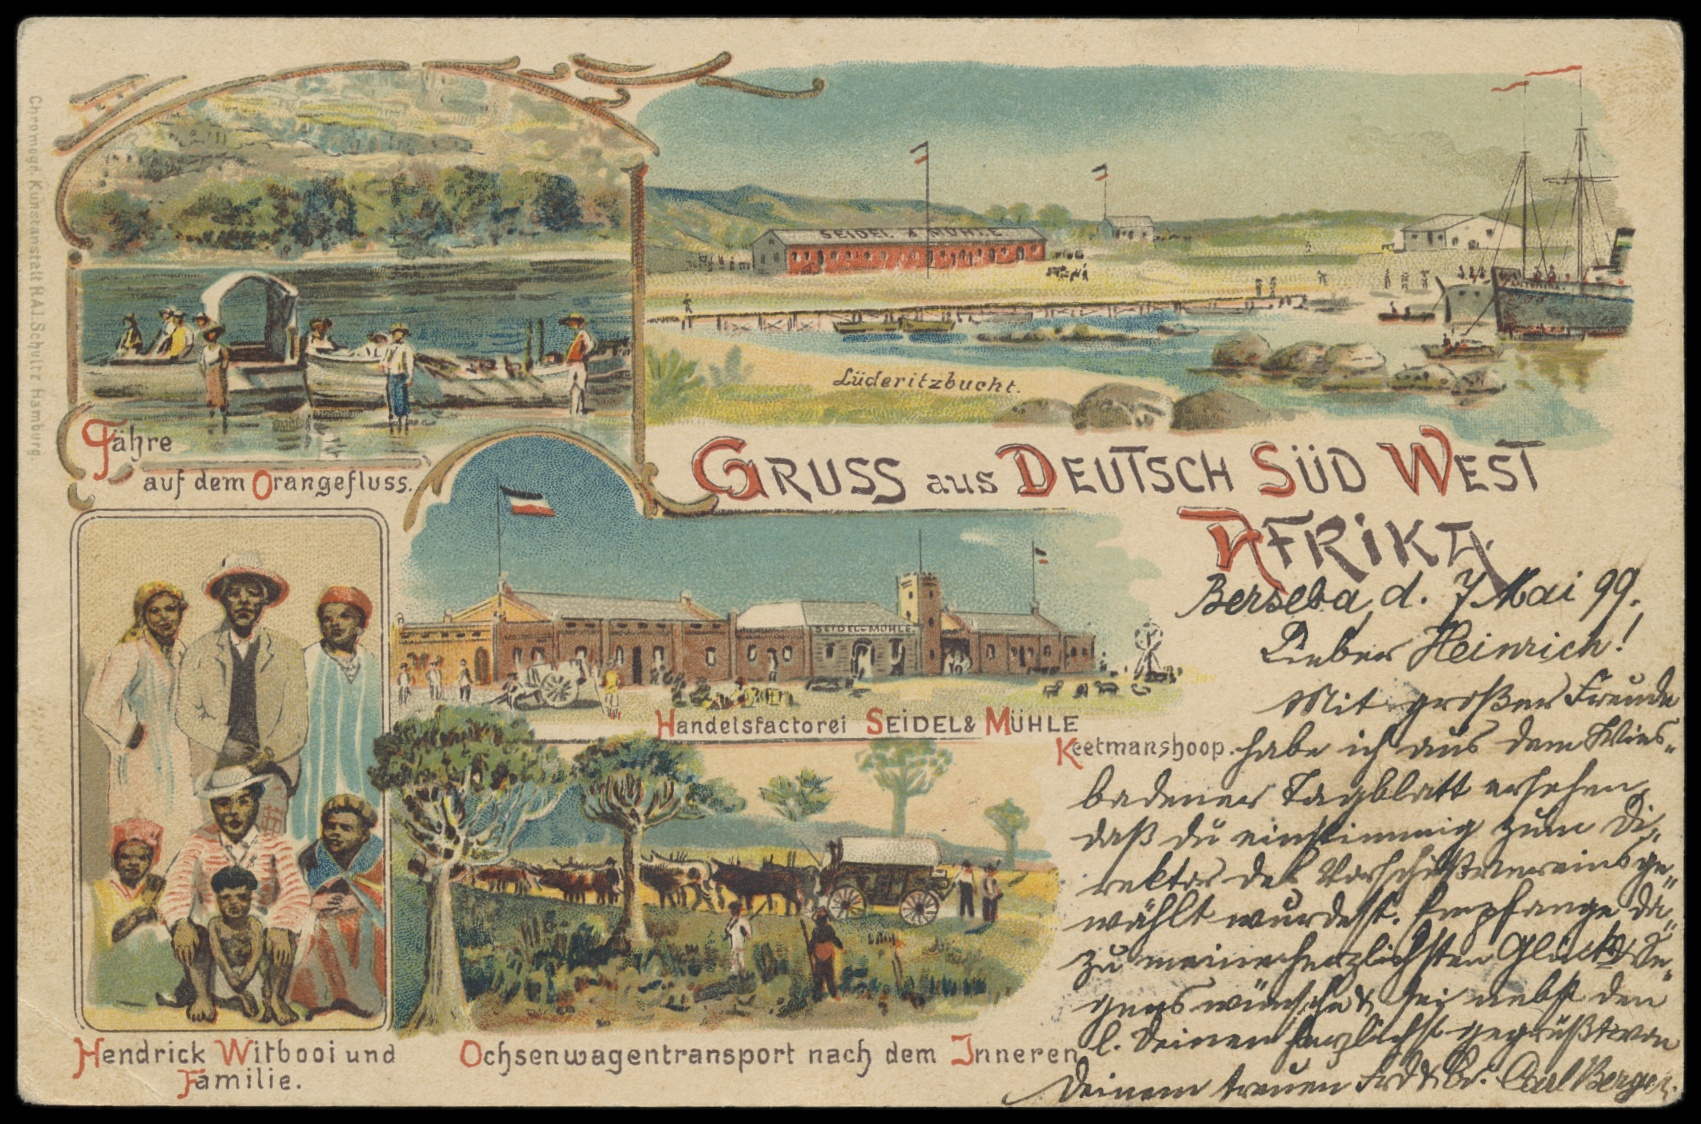 Chromogr. Kunstanstalt H.A.J. Schultz Hamburg.
SEIDEL & MÜHLE
Lüderitzbucht.
Fähre
auf dem Orangefluss.
GRUSS aus DEUTSCH SÜD WEST
AFRIKA.
SEIDEL & MÜHLE.
Handelsfactorei SEIDEL & MÜHLE
Keetmanshoop.
Hendrick Witbooi und
Familie.
Ochsenwagentransport nach dem Inneren.
Berseba, d. 7 Mai 99.
Lieber Heinrich!
Mit großer Freude
habe ich aus dem Wies-
badener Tagblatt ersehen,
daß du einstimmig zum Di-
rektor des Vorschußvereins ge-
wählt wurdest. Empfange da-
zu meine herzlichsten Glück & Se-
genswünsche & sei nebst den
l. Deinen herzlichst gegrüßt von
Deinem treuen Frd & Br. Carl Berger.